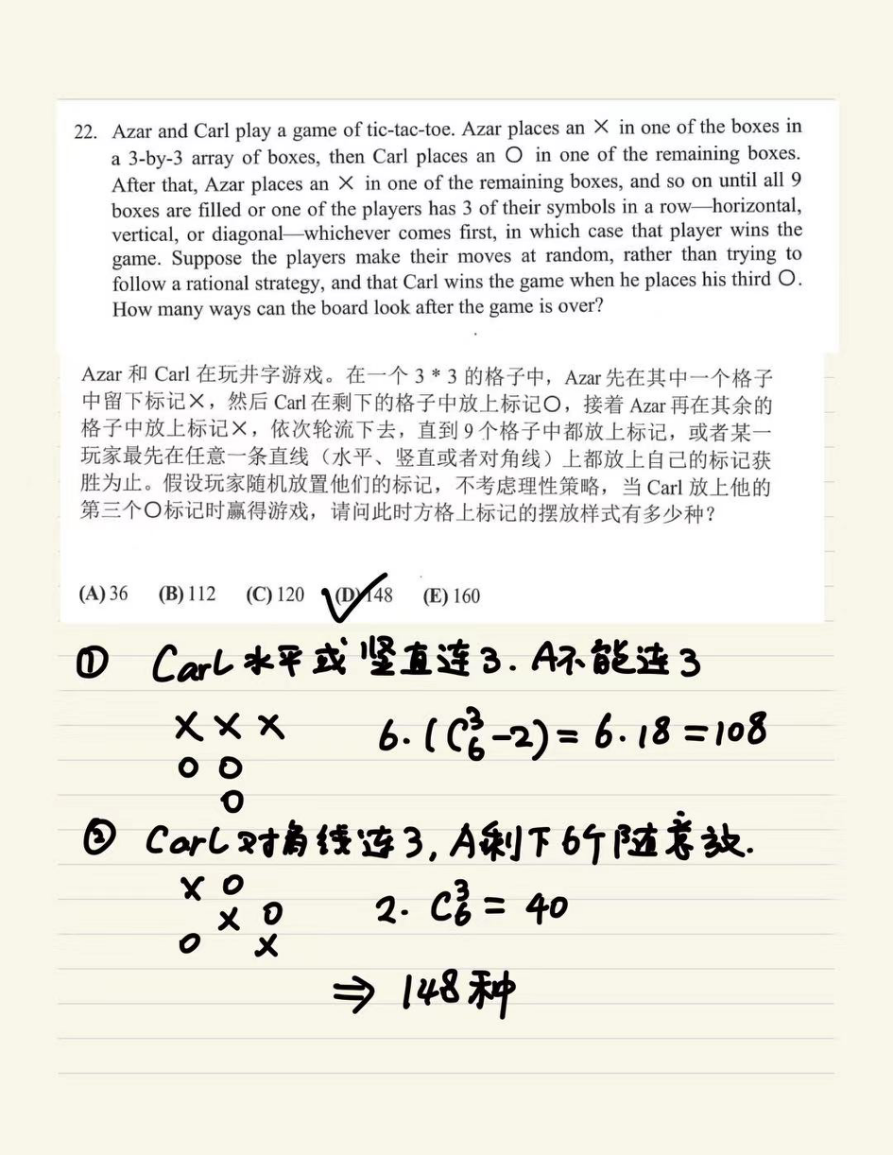 22. Azar and Carl play a game of tic-tac-toe. Azar places an × in one of the boxes in
a 3-by-3 array of boxes, then Carl places an ○ in one of the remaining boxes.
After that, Azar places an × in one of the remaining boxes, and so on until all 9
boxes are filled or one of the players has 3 of their symbols in a row—horizontal,
vertical, or diagonal—whichever comes first, in which case that player wins the
game. Suppose the players make their moves at random, rather than trying to
follow a rational strategy, and that Carl wins the game when he places his third ○.
How many ways can the board look after the game is over?
Azar 和 Carl 在玩井字游戏。在一个 3 * 3 的格子中，Azar 先在其中一个格子
中留下标记×，然后 Carl 在剩下的格子中放上标记○，接着 Azar 再在其余的
格子中放上标记×，依次轮流下去，直到 9 个格子中都放上标记，或者某一
玩家最先在任意一条直线（水平、竖直或者对角线）上都放上自己的标记获
胜为止。假设玩家随机放置他们的标记，不考虑理性策略，当 Carl 放上他的
第三个○标记时赢得游戏，请问此时方格上标记的摆放样式有多少种？
(A) 36 (B) 112 (C) 120 (D) 148 (E) 160
① Carl 水平或竖直连3. A不能连3
× × ×
○ ○ 6·(C₆³-2)= 6·18 =108
○
② Carl对角线连3, A剩下6个随意放.
× ○
× ○ 2· C₆³ = 40
○ ×
⇒ 148种